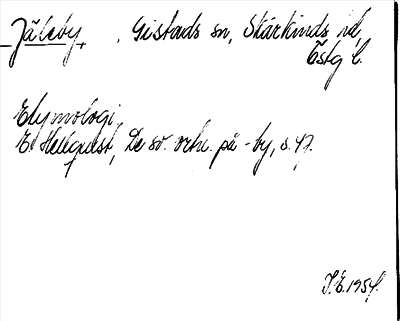 Jäleby, Gistads sn, Skärkinds hd,
Östg l.
Etymologi.
E. Hellquist, De sv. ortn. på -by, s. 47.
J.E. 1954.